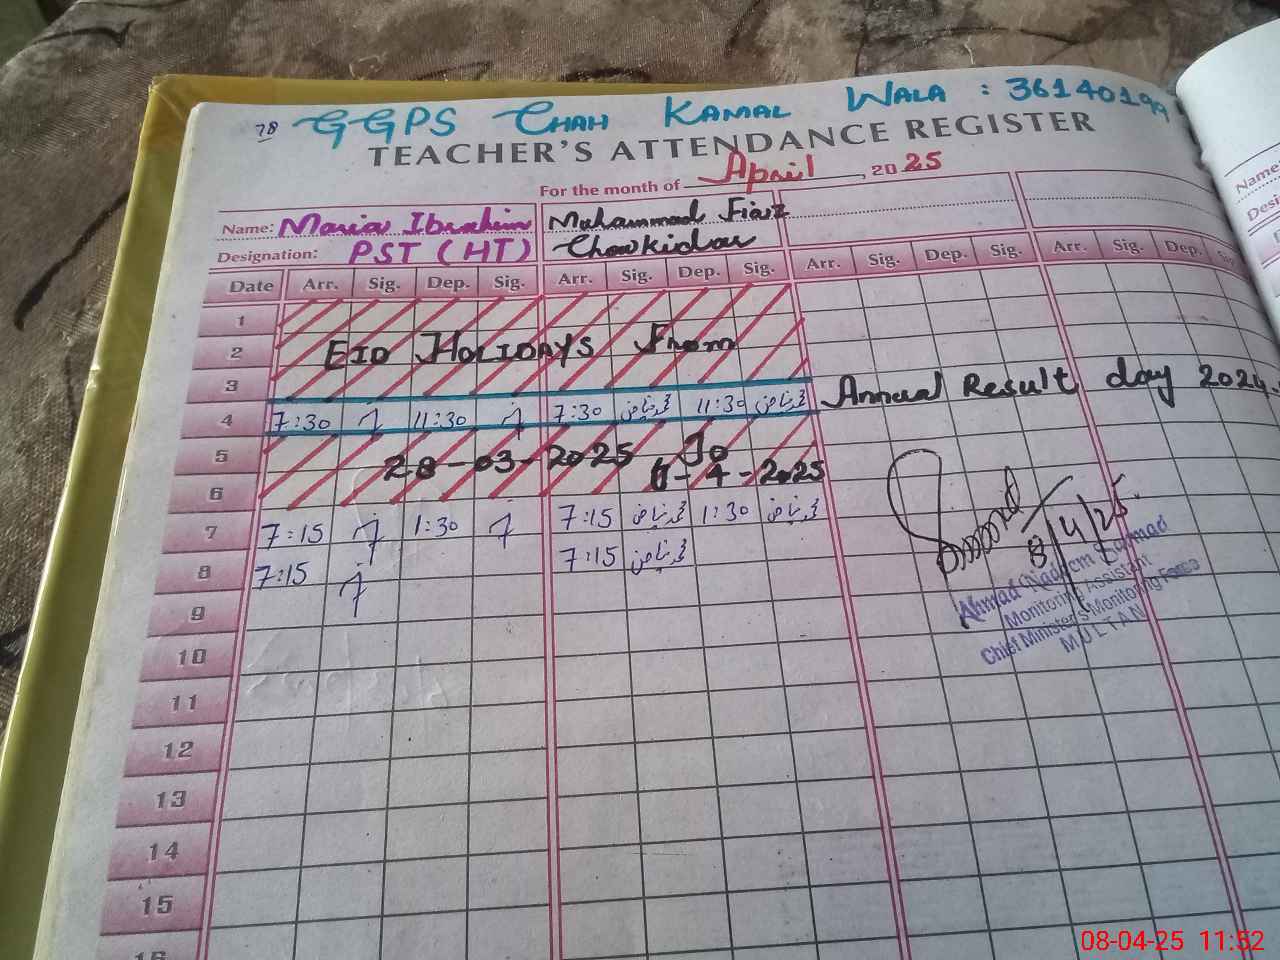 78 GGPS CHAH KAMAL WALA : 36140199
TEACHER'S ATTENDANCE REGISTER
For the month of April, 2025
Name: Maria Ibrahim Muhammad Fiaz
Designation: PST (HT) Chowkidar
Date Arr. Sig. Dep. Sig. Arr. Sig. Dep. Sig. Arr. Sig. Dep. Sig. Arr. Sig. Dep.
1
2 EID HOLIDAYS From
3
4 7:30 11:30 7:30 محمد فیاض 11:30 محمد فیاض Annual Result day 2024
5 28-03-2025 To
6 6-4-2025
7 7:15 1:30 7:15 محمد فیاض 1:30 محمد فیاض
8 7:15 7:15 محمد فیاض
8/4/25
Ahmad Nadeem Sarmad
Monitoring Assistant
Chief Minister's Monitoring Force
MULTAN
9
10
11
12
13
14
15
16
Name:
08-04-25 11:52